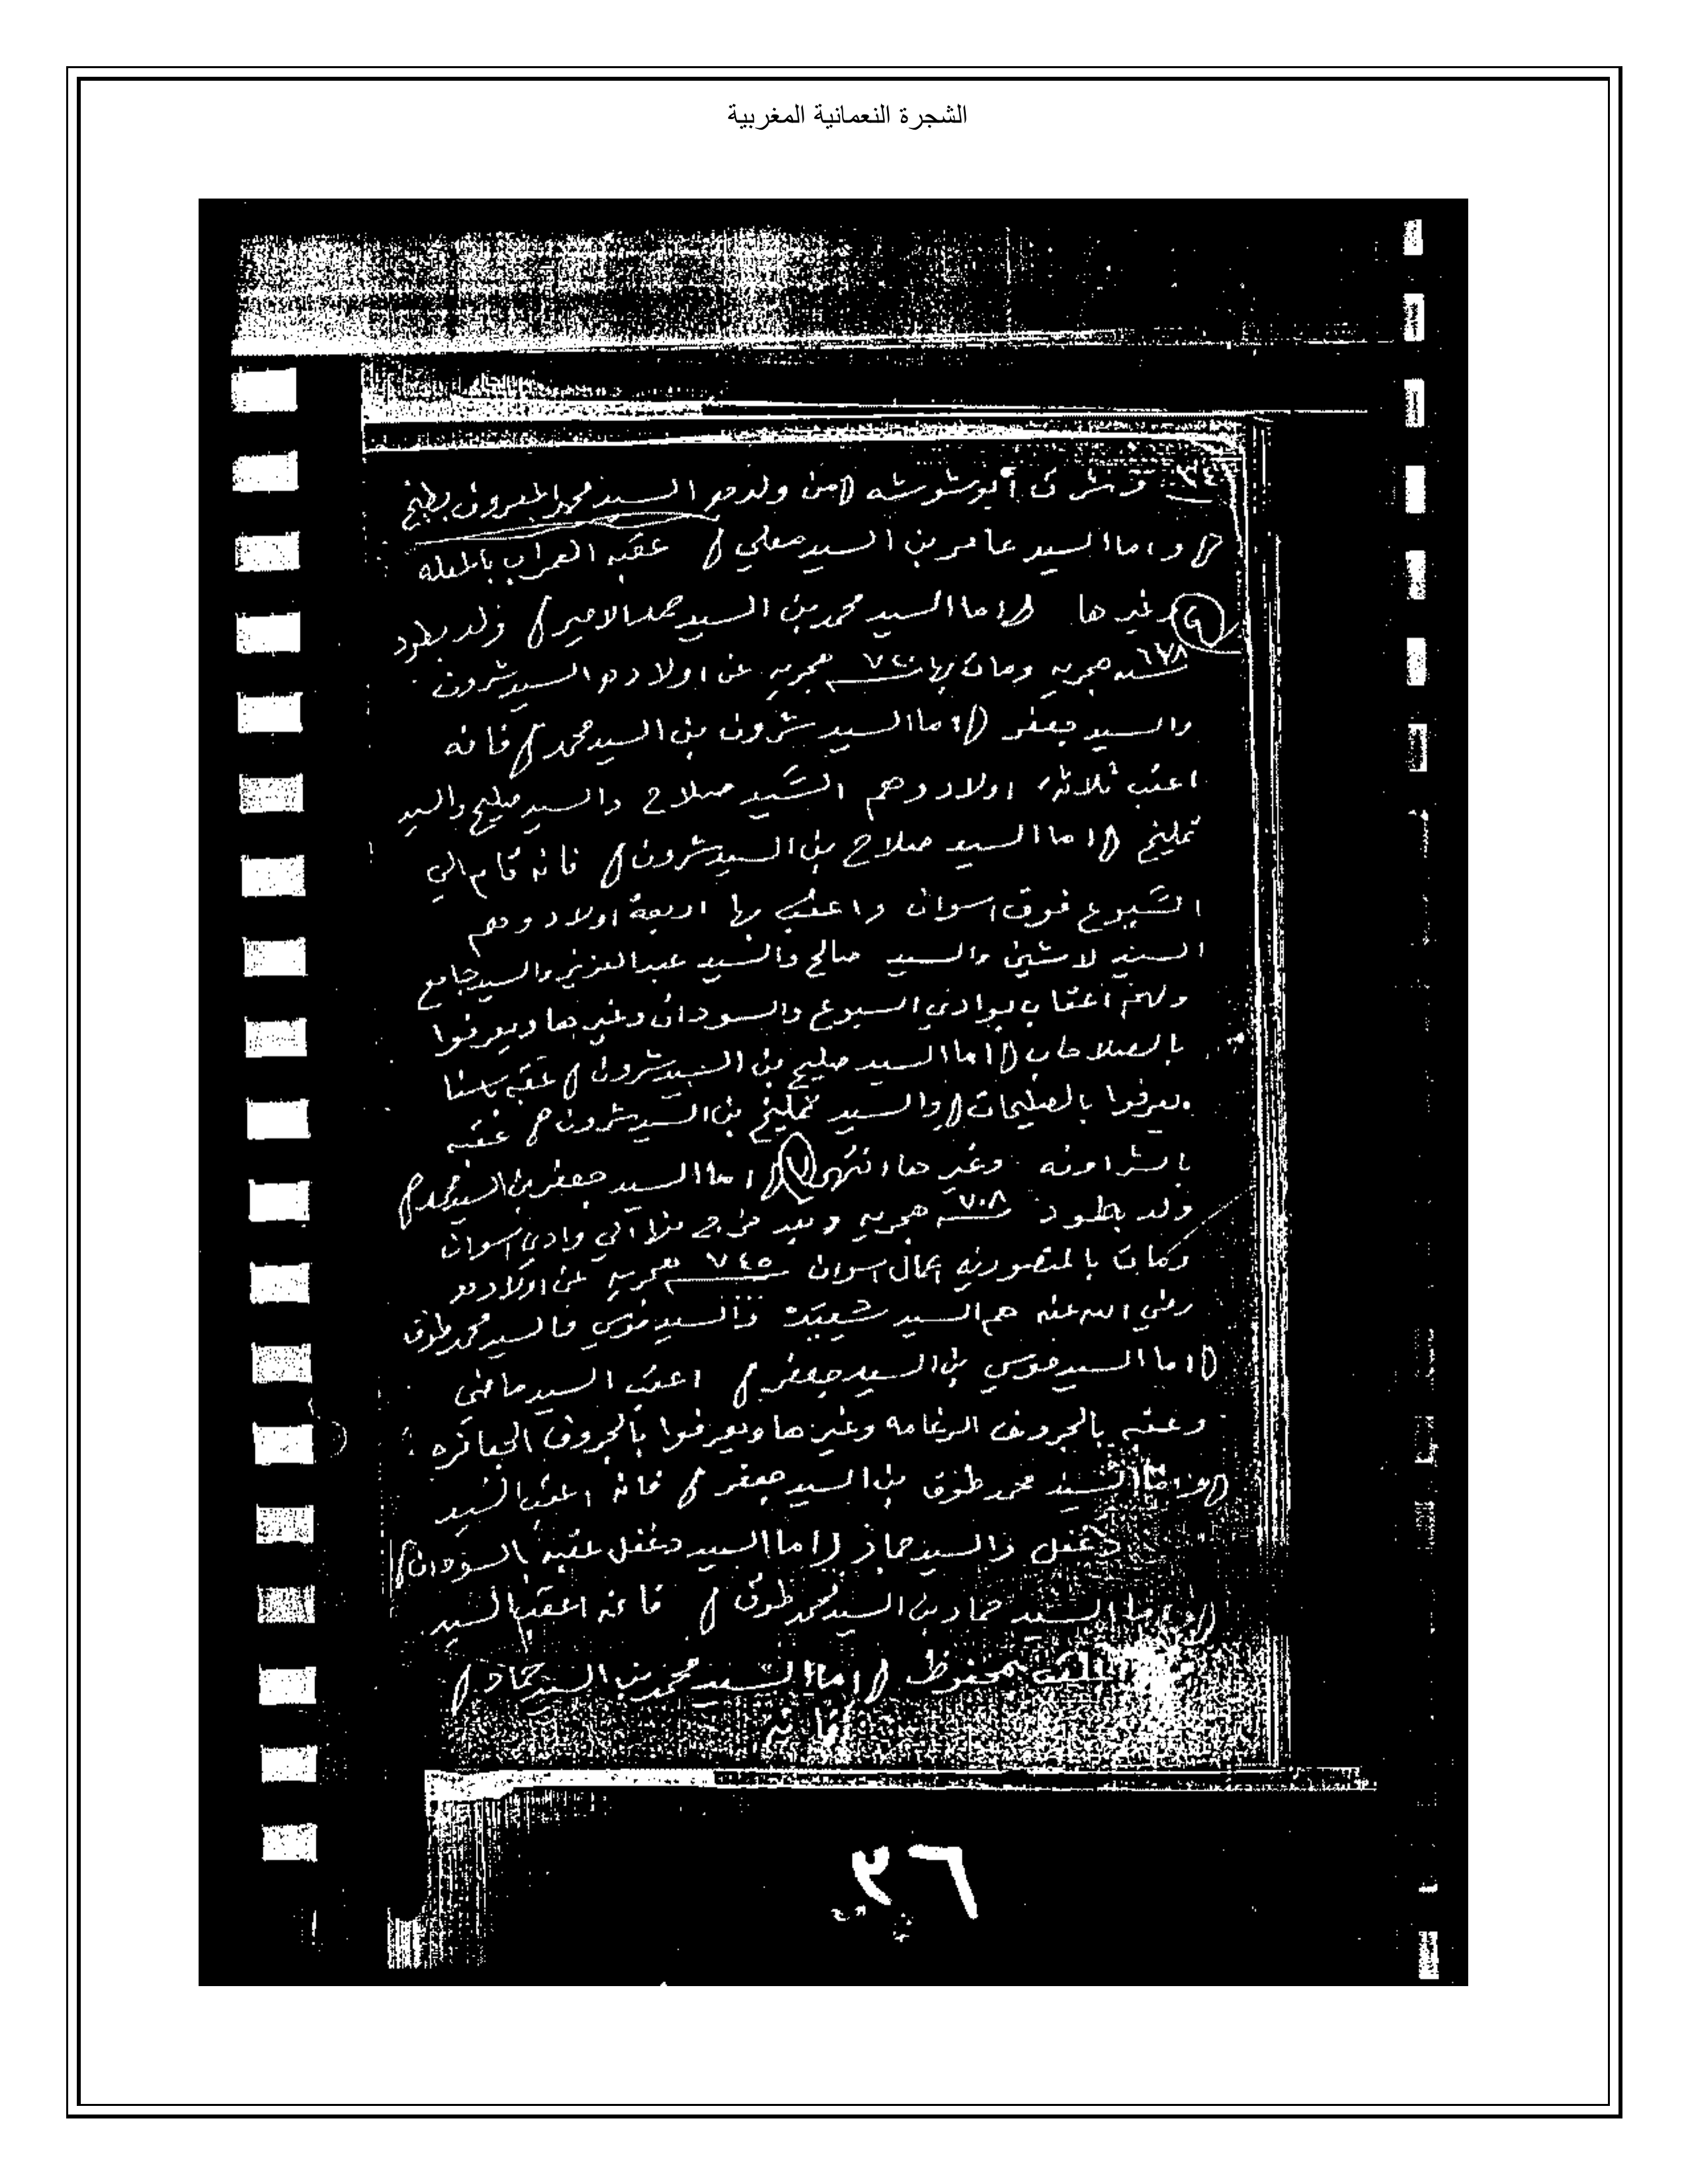 الشجرة النعمانية المغربية
من ولده السيد محمد المعروف بطيخ
واما السيد عامر بن السيد معلي عقبه بالمعله
وغيرها اما السيد محمد بن السيد حمد الامير ولد بطود
٦٧٨ سنه هجريه ومات بها سنه هجريه عن اولاده السيد شرون
والسيد جعفر اما السيد شرون بن السيد محمد فانه
اعقب ثلاثه اولاد وهم السيد صلاح والسيد صليح والسيد
تمليخ اما السيد صلاح بن السيد شرون فانه قام الي
السبوع فوق اسوان واعقب بها اربعة اولاد وهم
السيد لاشين والسيد صالح والسيد عبدالعزيز والسيد جامع
ولهم اعقاب بوادي السبوع والسودان وغيرها ويعرفوا
بالصلاحاب اما السيد صليح بن السيد شرون عقبه باسنا
يعرفوا بالصليحات والسيد تمليخ بن السيد شرون عقبه
بالشراونه وغيرها انتهى ٧ اما السيد جعفر بن السيد محمد
ولد بطود سنه ٧٠٨ هجريه وبعد خرج منها الي وادي اسوان
ومات بالمنصوريه اعمال اسوان سنه ٧٤٥ هجريه عن اولاده
رضي الله عنه هم السيد والسيد موسي والسيد محمد طوق
اما السيد موسي بن السيد جعفر اعقب السيد ماضي
وعقبه بالجروف الرغامه وغيرها ويعرفوا بالجروف الجعافره
واما السيد محمد طوق بن السيد جعفر فانه اعقب السيد
دغفل والسيد حماد اما السيد دغفل عقبه بالسودان
واما السيد حماد بن السيد محمد طوق فانه اعقب السيد
محفوظ اما السيد محمد بن السيد حماد
فانه
٣٦